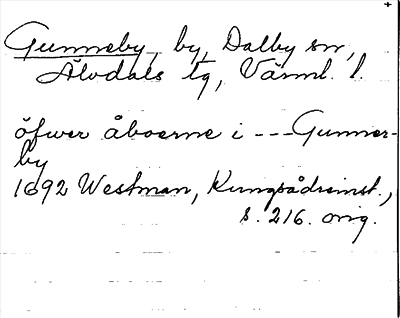 Gunneby, by, Dalby sn,
Älvdals tg, Värml. l.
öfwer åboerne i --- Gunner-
by
1692 Westman, Kungsådreinst.,
s. 216. orig.